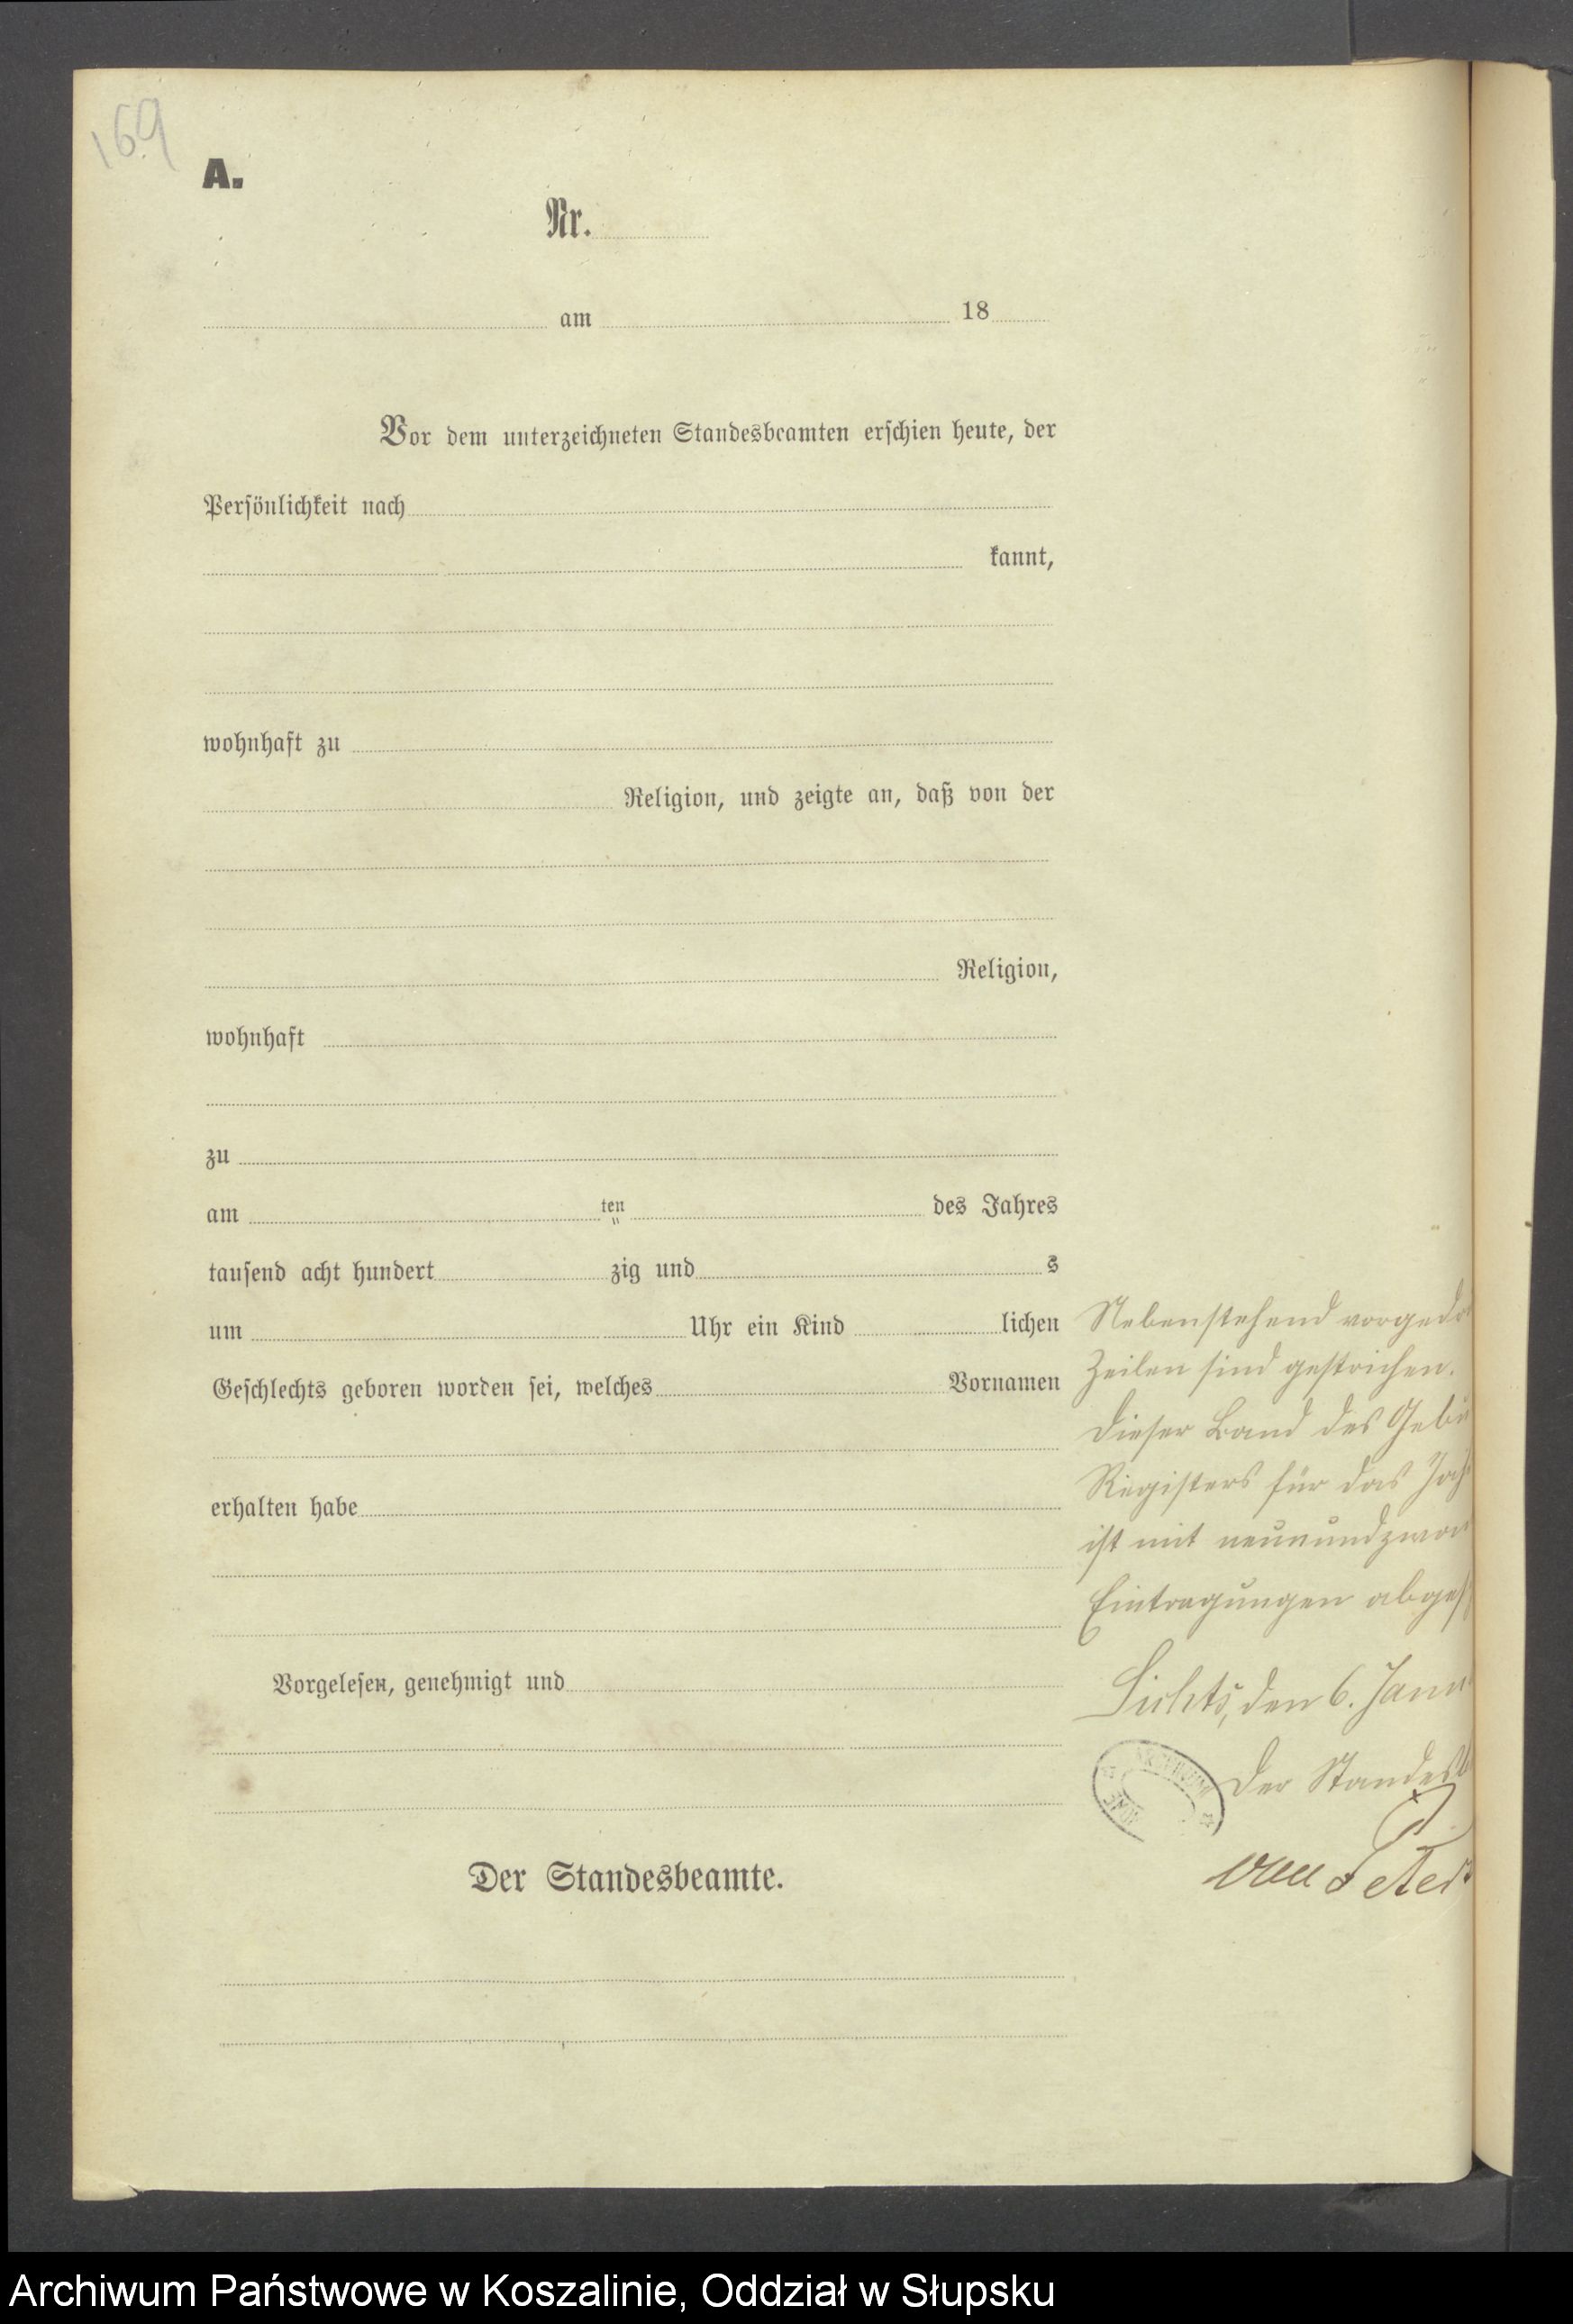 169
A.
Nr.
am 18
Vor dem unterzeichneten Standesbeamten erschien heute, der
Persönlichkeit nach
kannt,
wohnhaft zu
Religion, und zeigte an, daß von der
Religion,
wohnhaft
zu
am ten des Jahres
tausend acht hundert zig und s
um Uhr ein Kind lichen
Geschlechts geboren worden sei, welches Vornamen
erhalten habe
Vorgelesen, genehmigt und
Der Standesbeamte.
Nebenstehend vorgedr
Zeilen sind gestrichen.
Dieser Band des Gebu
Registers für das Jah
ist mit neunundzwan
Eintragungen abges
den 6. Janu
Der Standesb
Archiwum Państwowe w Koszalinie, Oddział w Słupsku